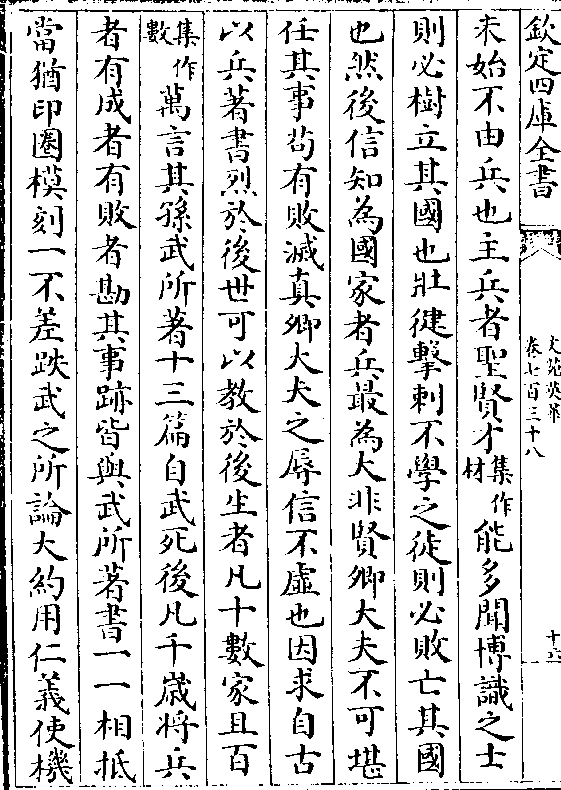 欽定四庫全書
文苑英華
卷七百三十八
十六
未始不由兵也主兵者聖賢才集作材能多聞博識之士
則必樹立其國也壯健擊刺不學之徒則必敗亡其國
也然後信知為國家者兵最為大非賢卿大夫不可堪
任其事苟有敗滅真卿大夫之辱信不虛也因求自古
以兵著書烈於後世可以教於後生者凡十數家且百
集作數萬言其孫武所著十三篇自武死後凡千嵗將兵
者有成者有敗者勘其事跡皆與武所著書一一相抵
當猶印圈模刻一不差跌武之所論大約用仁義使機